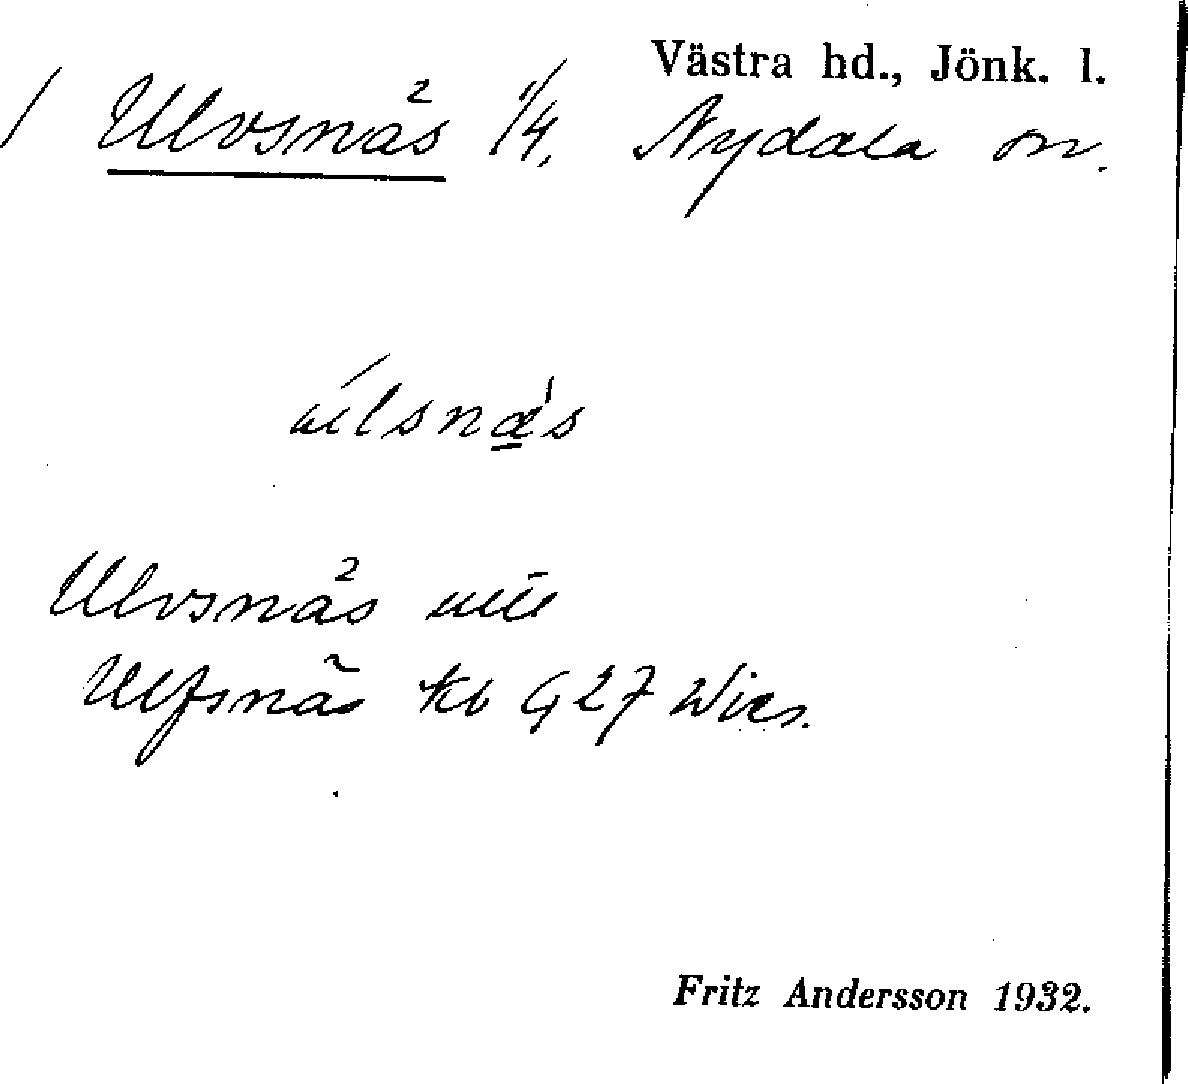 Västra hd., Jönk. l.
/ Ulvsnäs 1/4, Nydala sn.
ulsnä's
Ulvsnäs
Ulfsnäs kb G 27 Wies.
Fritz Andersson 1932.